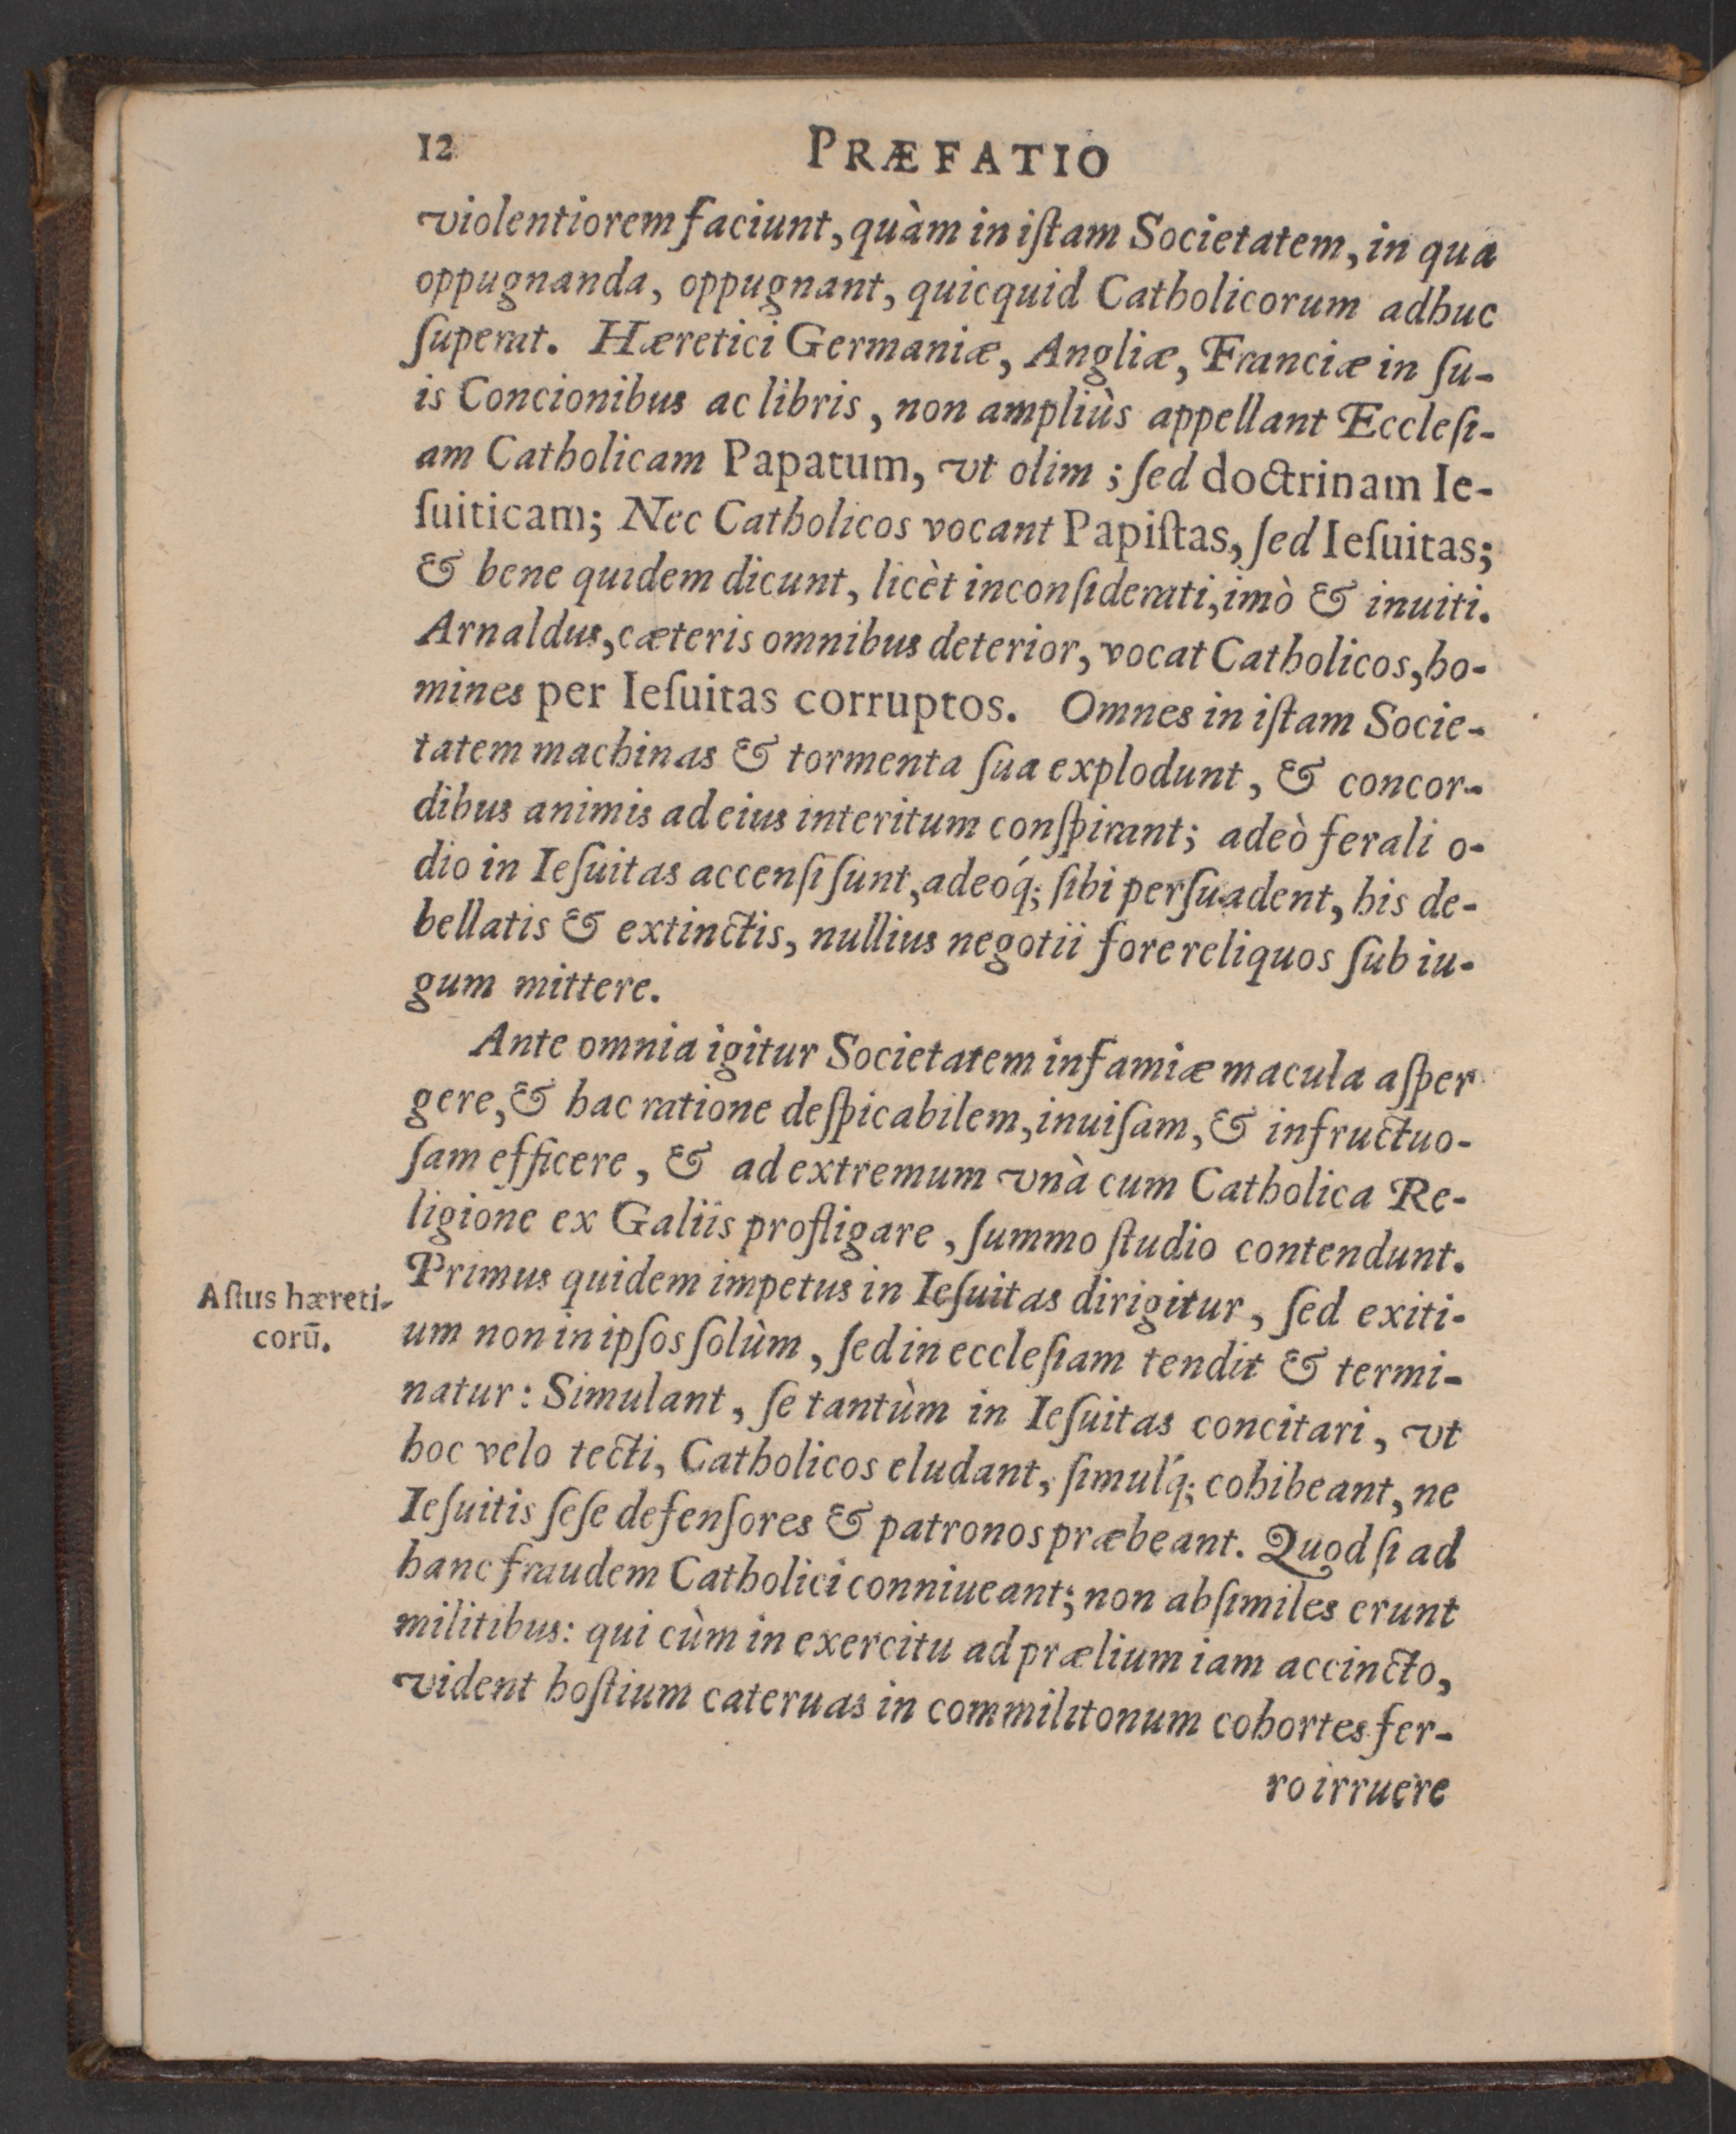 12 PRÆFATIO
violentiorem faciunt, quàm in iſtam Societatem, in qua
oppugnanda, oppugnant, quicquid Catholicorum adhuc
ſuperat. Hæretici Germaniæ, Angliæ, Franciæ in ſu-
is Concionibus ac libris, non ampliùs appellant Eccleſi-
am Catholicam Papatum, vt olim; ſed doctrinam Ie-
ſuiticam; Nec Catholicos vocant Papiſtas, ſed Ieſuitas;
& bene quidem dicunt, licèt inconſiderati, imò & inuiti.
Arnaldus, cæteris omnibus deterior, vocat Catholicos, ho-
mines per Ieſuitas corruptos. Omnes in iſtam Socie-
tatem machinas & tormenta ſua explodunt, & concor-
dibus animis ad eius interitum conſpirant; adeò ferali o-
dio in Ieſuitas accenſi ſunt, adeóq; ſibi perſuadent, his de-
bellatis & extinctis, nullius negotii fore reliquos ſub iu-
gum mittere.
Ante omnia igitur Societatem infamiæ macula aſper
gere, & hac ratione deſpicabilem, inuiſam, & infructuo-
ſam efficere, & ad extremum vnà cum Catholica Re-
ligione ex Galiis profligare, ſummo ſtudio contendunt.
Primus quidem impetus in Ieſuitas dirigitur, ſed exiti-
Aſtus hæreti-
corū.
um non in ipſos ſolùm, ſed in eccleſiam tendit & termi-
natur: Simulant, ſe tantùm in Ieſuitas concitari, vt
hoc velo tecti, Catholicos eludant, ſimulq́; cohibeant, ne
Ieſuitis ſeſe defenſores & patronos præbeant. Quod ſi ad
hanc fraudem Catholici conniueant; non abſimiles erunt
militibus: qui cùm in exercitu ad prælium iam accincto,
vident hoſtium cateruas in commilitonum cohortes fer-
ro irruere